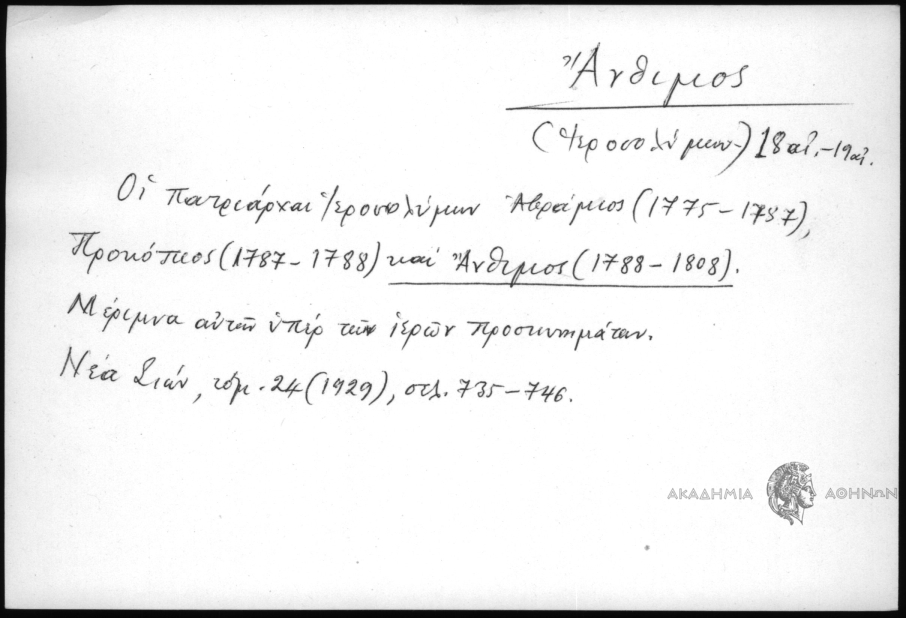 Ἄνθιμος
(Ἱεροσολύμων) 18 αἰ. - 19 αἰ.
Οἱ Πατριάρχαι Ἱεροσολύμων Ἀβράμιος (1775 - 1787),
Προκόπιος (1787 - 1788) καὶ Ἄνθιμος (1788 - 1808).
Μέριμνα αὐτῶν ὑπὲρ τῶν ἱερῶν προσκυνημάτων.
Νέα Σιών, τόμ. 24 (1929), σελ. 735 - 746.
ΑΚΑΔΗΜΙΑ ΑΘΗΝΩΝ